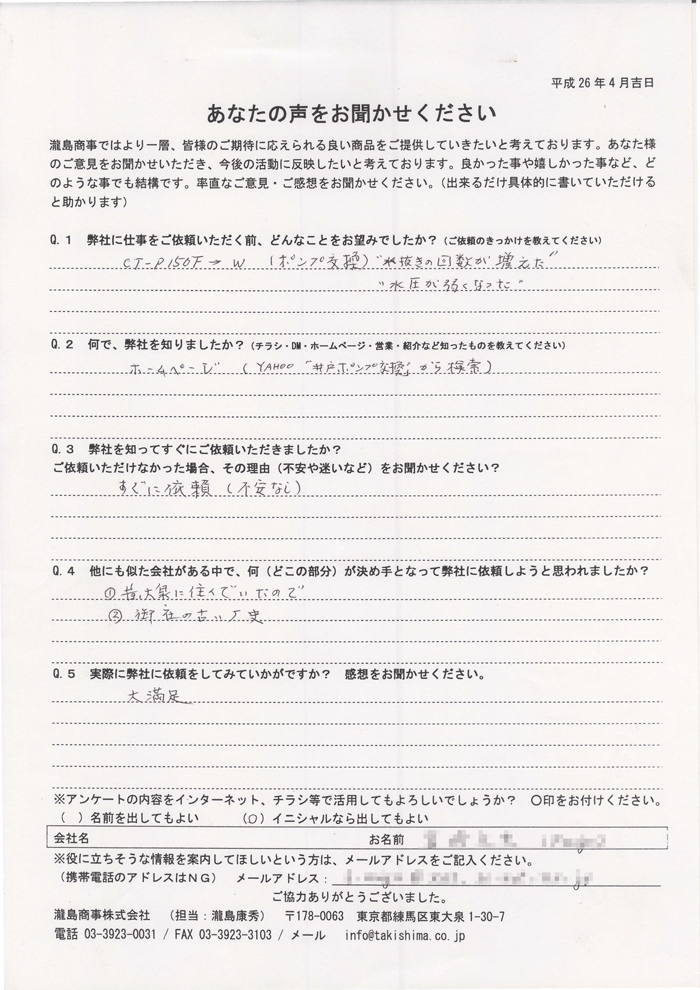 平成26年4月吉日
あなたの声をお聞かせください
瀧島商事ではより一層、皆様のご期待に応えられる良い商品をご提供していきたいと考えております。あなた様
のご意見をお聞かせいただき、今後の活動に反映したいと考えております。良かった事や嬉しかった事など、ど
のような事でも結構です。率直なご意見・ご感想をお聞かせください。(出来るだけ具体的に書いていただける
と助かります)
Q.1 弊社に仕事をご依頼いただく前、どんなことをお望みでしたか?(ご依頼のきっかけを教えてください)
CT-P150F→W (ポンプ交換)"水抜きの回数が増えた"
"水圧が弱くなった"
Q.2 何で、弊社を知りましたか?(チラシ・DM・ホームページ・営業・紹介など知ったものを教えてください)
ホームページ (YAHOO「井戸ポンプ交換」から検索)
Q.3 弊社を知ってすぐにご依頼いただきましたか?
ご依頼いただけなかった場合、その理由(不安や迷いなど)をお聞かせください?
すぐに依頼(不安なし)
Q.4 他にも似た会社がある中で、何(どこの部分)が決め手となって弊社に依頼しようと思われましたか?
①昔大泉に住んでいたので
② 御社の古い
Q.5 実際に弊社に依頼をしてみていかがですか? 感想をお聞かせください。
大満足
※アンケートの内容をインターネット、チラシ等で活用してもよろしいでしょうか? 〇印をお付けください。
( )名前を出してもよい (○)イニシャルなら出してもよい
会社名 お名前
※役に立ちそうな情報を案内してほしいという方は、メールアドレスをご記入ください。
(携帯電話のアドレスはNG) メールアドレス:
ご協力ありがとうございました。
瀧島商事株式会社 (担当:瀧島康秀) 〒178-0063 東京都練馬区東大泉1-30-7
電話 03-3923-0031 / FAX 03-3923-3103 / メール info@takishima.co.jp